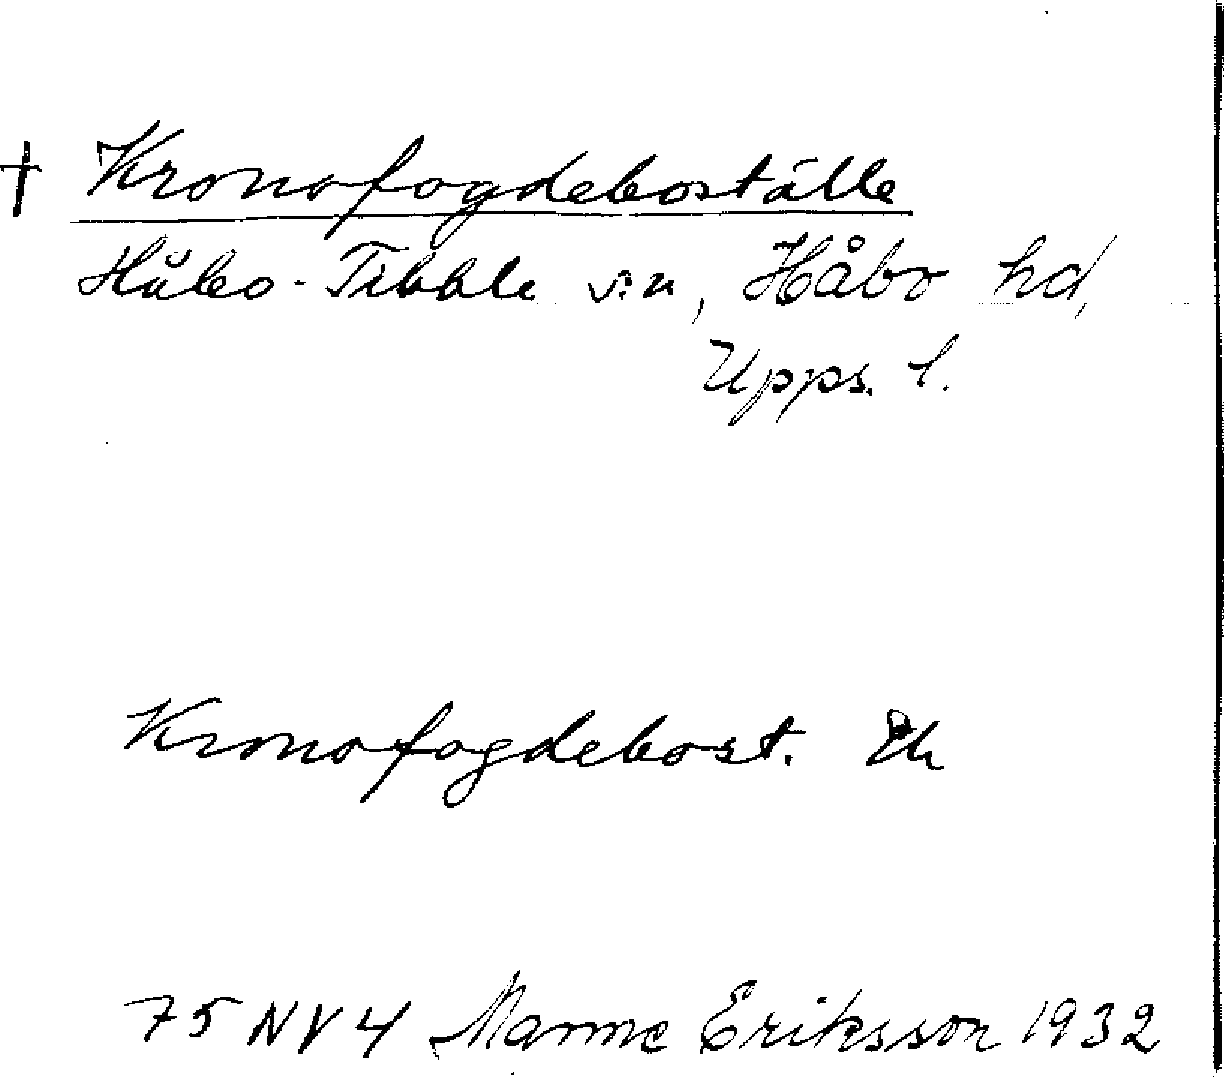 † Kronofogdeboställe
Håbo-Tibble s:n, Håbo hd,
Upps. l.
Kronofogdebost. Ek
75 NV 4 Manne Eriksson 1932